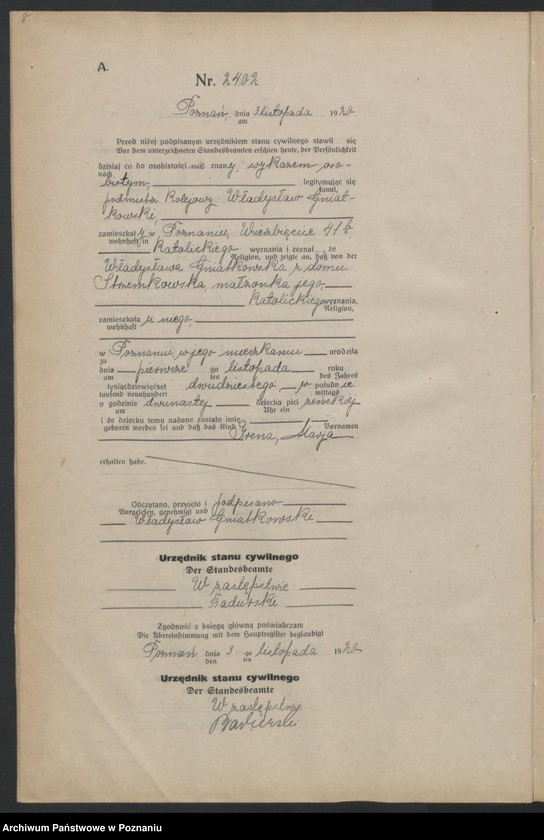 8
A.
Nr. 2402
Poznań, dnia 3 listopada 1920
am
Przed niżej podpisanym urzędnikiem stanu cywilnego stawił się
Vor dem unterzeichneten Standesbeamten erschien heute, der Persönlichkeit
dzisiaj co do osobistości nie znany, wykazem oso-
nach
bistym, legitymując się
kannt,
podmistrz kolejowy Władysław Gniat-
kowski,
zamieszkały w Poznaniu, Wierzbięcice 41b,
wohnhaft in
katolickiego wyznania i zeznał, że
Religion, und zeigte an, daß von der
Władysława Gniatkowska z domu
Strzemkowska, małżonka jego,
katolickiego wyznania,
Religion,
zamieszkała u niego,
wohnhaft
w Poznaniu, w jego mieszkaniu urodziła
zu
dnia pierwszego listopada roku
am ten des Jahres
tysiącdziewięćset dwudziestego po południe
tausend neunhundert mittags
o godzinie dwunastej dziecko płci żeńskiej
um Uhr ein
i że dziecku temu nadane zostało imię
geboren worden sei und daß das Kind Vornamen
Irena, Marja
erhalten habe.
Odczytano, przyjęto i podpisano
Vorgelesen, genehmigt und
Władysław Gniatkowski
Urzędnik stanu cywilnego
Der Standesbeamte
W zastępstwie
Badurski
Zgodność z księgą główną poświadczam
Die Übereinstimmung mit dem Hauptregister beglaubigt
Poznań dnia 3 go listopada 1920
den ten
Urzędnik stanu cywilnego
Der Standesbeamte
W zastępstwie
Badurski
Archiwum Państwowe w Poznaniu